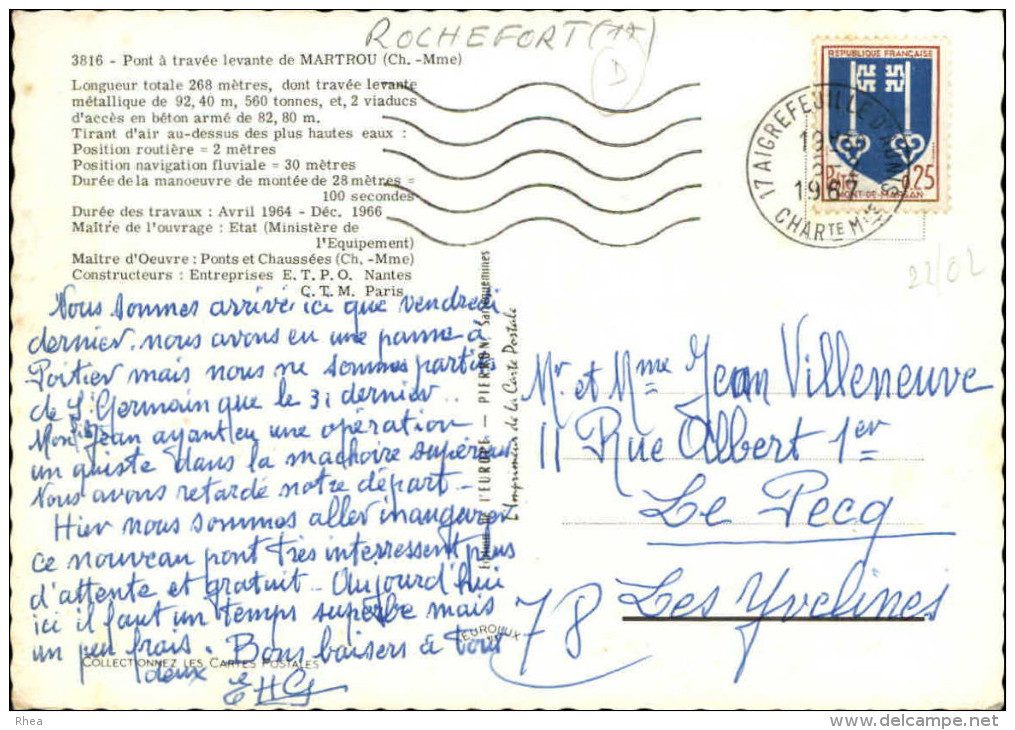 ROCHEFORT (17)
D
3816 - Pont à travée levante de MARTROU (Ch. -Mme)
Longueur totale 268 mètres, dont travée levante
métallique de 92, 40 m, 560 tonnes, et, 2 viaducs
d'accès en béton armé de 82, 80 m.
Tirant d'air au-dessus des plus hautes eaux :
Position routière = 2 mètres
Position navigation fluviale = 30 mètres
Durée de la manoeuvre de montée de 28 mètres =
100 secondes
Durée des travaux : Avril 1964 - Déc. 1966
Maître de l'ouvrage : Etat (Ministère de
l'Equipement)
Maître d'Oeuvre : Ponts et Chaussées (Ch. -Mme)
Constructeurs : Entreprises E. T. P. O. Nantes
C. T. M. Paris
Nous sommes arrivé ici que vendredi
dernier. nous avons eu une panne à
Poitier mais nous ne sommes parties
de St Germain que le 31 dernier..
Jean ayant eu une opération
un quiste dans la machoire supérieur
Nous avons retardé notre départ -
Hier nous sommes aller inaugurer
ce nouveau pont très interressent plus
d'attente et gratuit - Aujourd'hui
ici il faut un temps superbe mais
un peu frais. Bons baisers à tout
deux
COLLECTIONNEZ LES CARTES POSTALES
DE L'EUROPE — PIERRON, Sarreguemines
L'Imprimeur de la Carte Postale
EUROLUX
REPUBLIQUE FRANÇAISE
POSTES 0,25
MONT-DE-MARSAN
17 AIGREFEUILLE D'AUNIS
1967
CHARTE MME
22/02
Mr et Mme Jean Villeneuve
11 Rue Albert 1er
Le Pecq
78 Les Yvelines
Rhea
delcampe.net